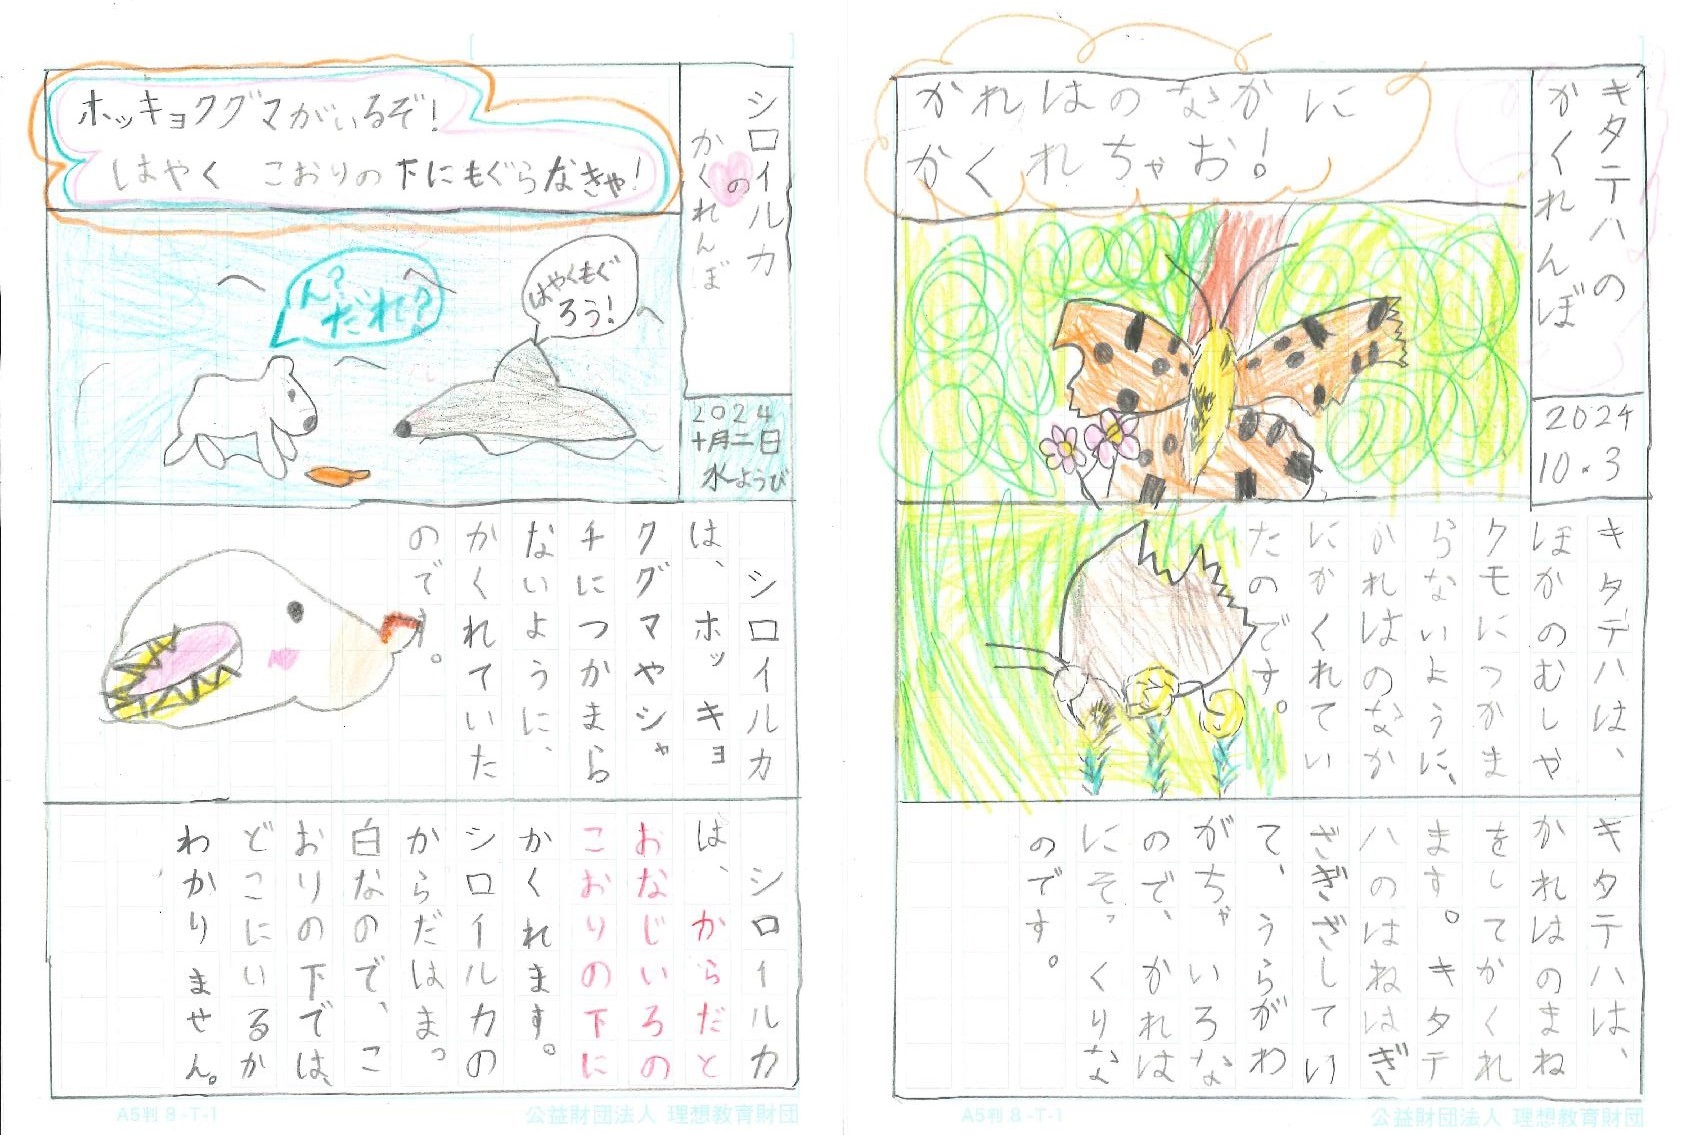 シロイルカ
の
かくれんぼ
2024
十月二日
水ようび
ホッキョクグマがいるぞ!
はやく こおりの下にもぐらなきゃ!
ん?
だれ?
はやくもぐ
ろう!
シロイルカ
は、ホッキョ
クグマやシャ
チにつかまら
ないように、
かくれていた
のです。
シロイルカ
は、からだと
おなじいろの
こおりの下に
かくれます。
シロイルカの
からだはまっ
白なので、こ
おりの下では、
どこにいるか
わかりません。
A5判 8-T-1
公益財団法人 理想教育財団
キタテハの
かくれんぼ
2024
10.3
かれはのなかに
かくれちゃお!
キタテハは、
ほかのむしや
クモにつかま
らないように、
かれはのなか
にかくれてい
たのです。
キタテハは、
かれはのまね
をしてかくれ
ます。キタテ
ハのはねはぎ
ざぎざしてい
て、うらがわ
がちゃいろな
ので、かれは
にそっくりな
のです。
A5判 8-T-1
公益財団法人 理想教育財団